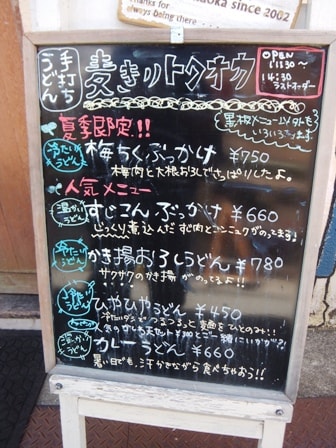 Thanks for
always doing there
since 2002
手打ち
うどん
麦きりトクオウ
OPEN
11:30〜
14:30
ラストオーダー
夏季限定!!
黒板メニュー以外も
いろいろあります。
冷たい
うどん
梅ちくぶっかけ ¥750
梅肉と大根おろしでさっぱりしたよ。
人気メニュー
温かい
うどん
すじコンぶっかけ ¥660
じっくり煮込んだすじ肉とコンニャクがのってます!
冷たい
うどん
かき揚おろしうどん ¥780
サクサクのかき揚がのってるよ!!
冷たい
うどん
ひやひやうどん ¥450
温かい
うどん
カレーうどん ¥660
暑い日でも、汗かきながら食べちゃおう!!